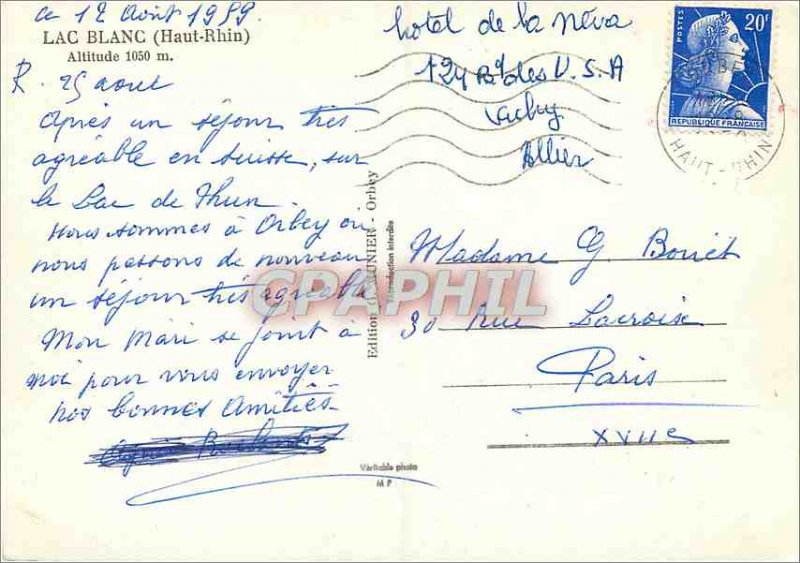 ce 12 Août 1959.
LAC BLANC (Haut-Rhin)
Altitude 1050 m.
R. 25 aout
Après un séjour très
agréable en Suisse, sur
le Lac de Thun.
Nous sommes à Orbey ou
nous passons de nouveau
un séjour très agréable
Mon Mari se joint à
moi pour vous envoyer
nos bonnes Amitiés
hotel de la Néva
124 Bd des U.S.A
Vichy
Allier
POSTES
20F
REPUBLIQUE FRANÇAISE
HAUT-RHIN
Madame G. Bouet
30 Rue Lacroix
Paris
XVIIe
Edition G. MUNIER - Orbey
Reproduction interdite
CPAPHIL
Véritable photo
M P